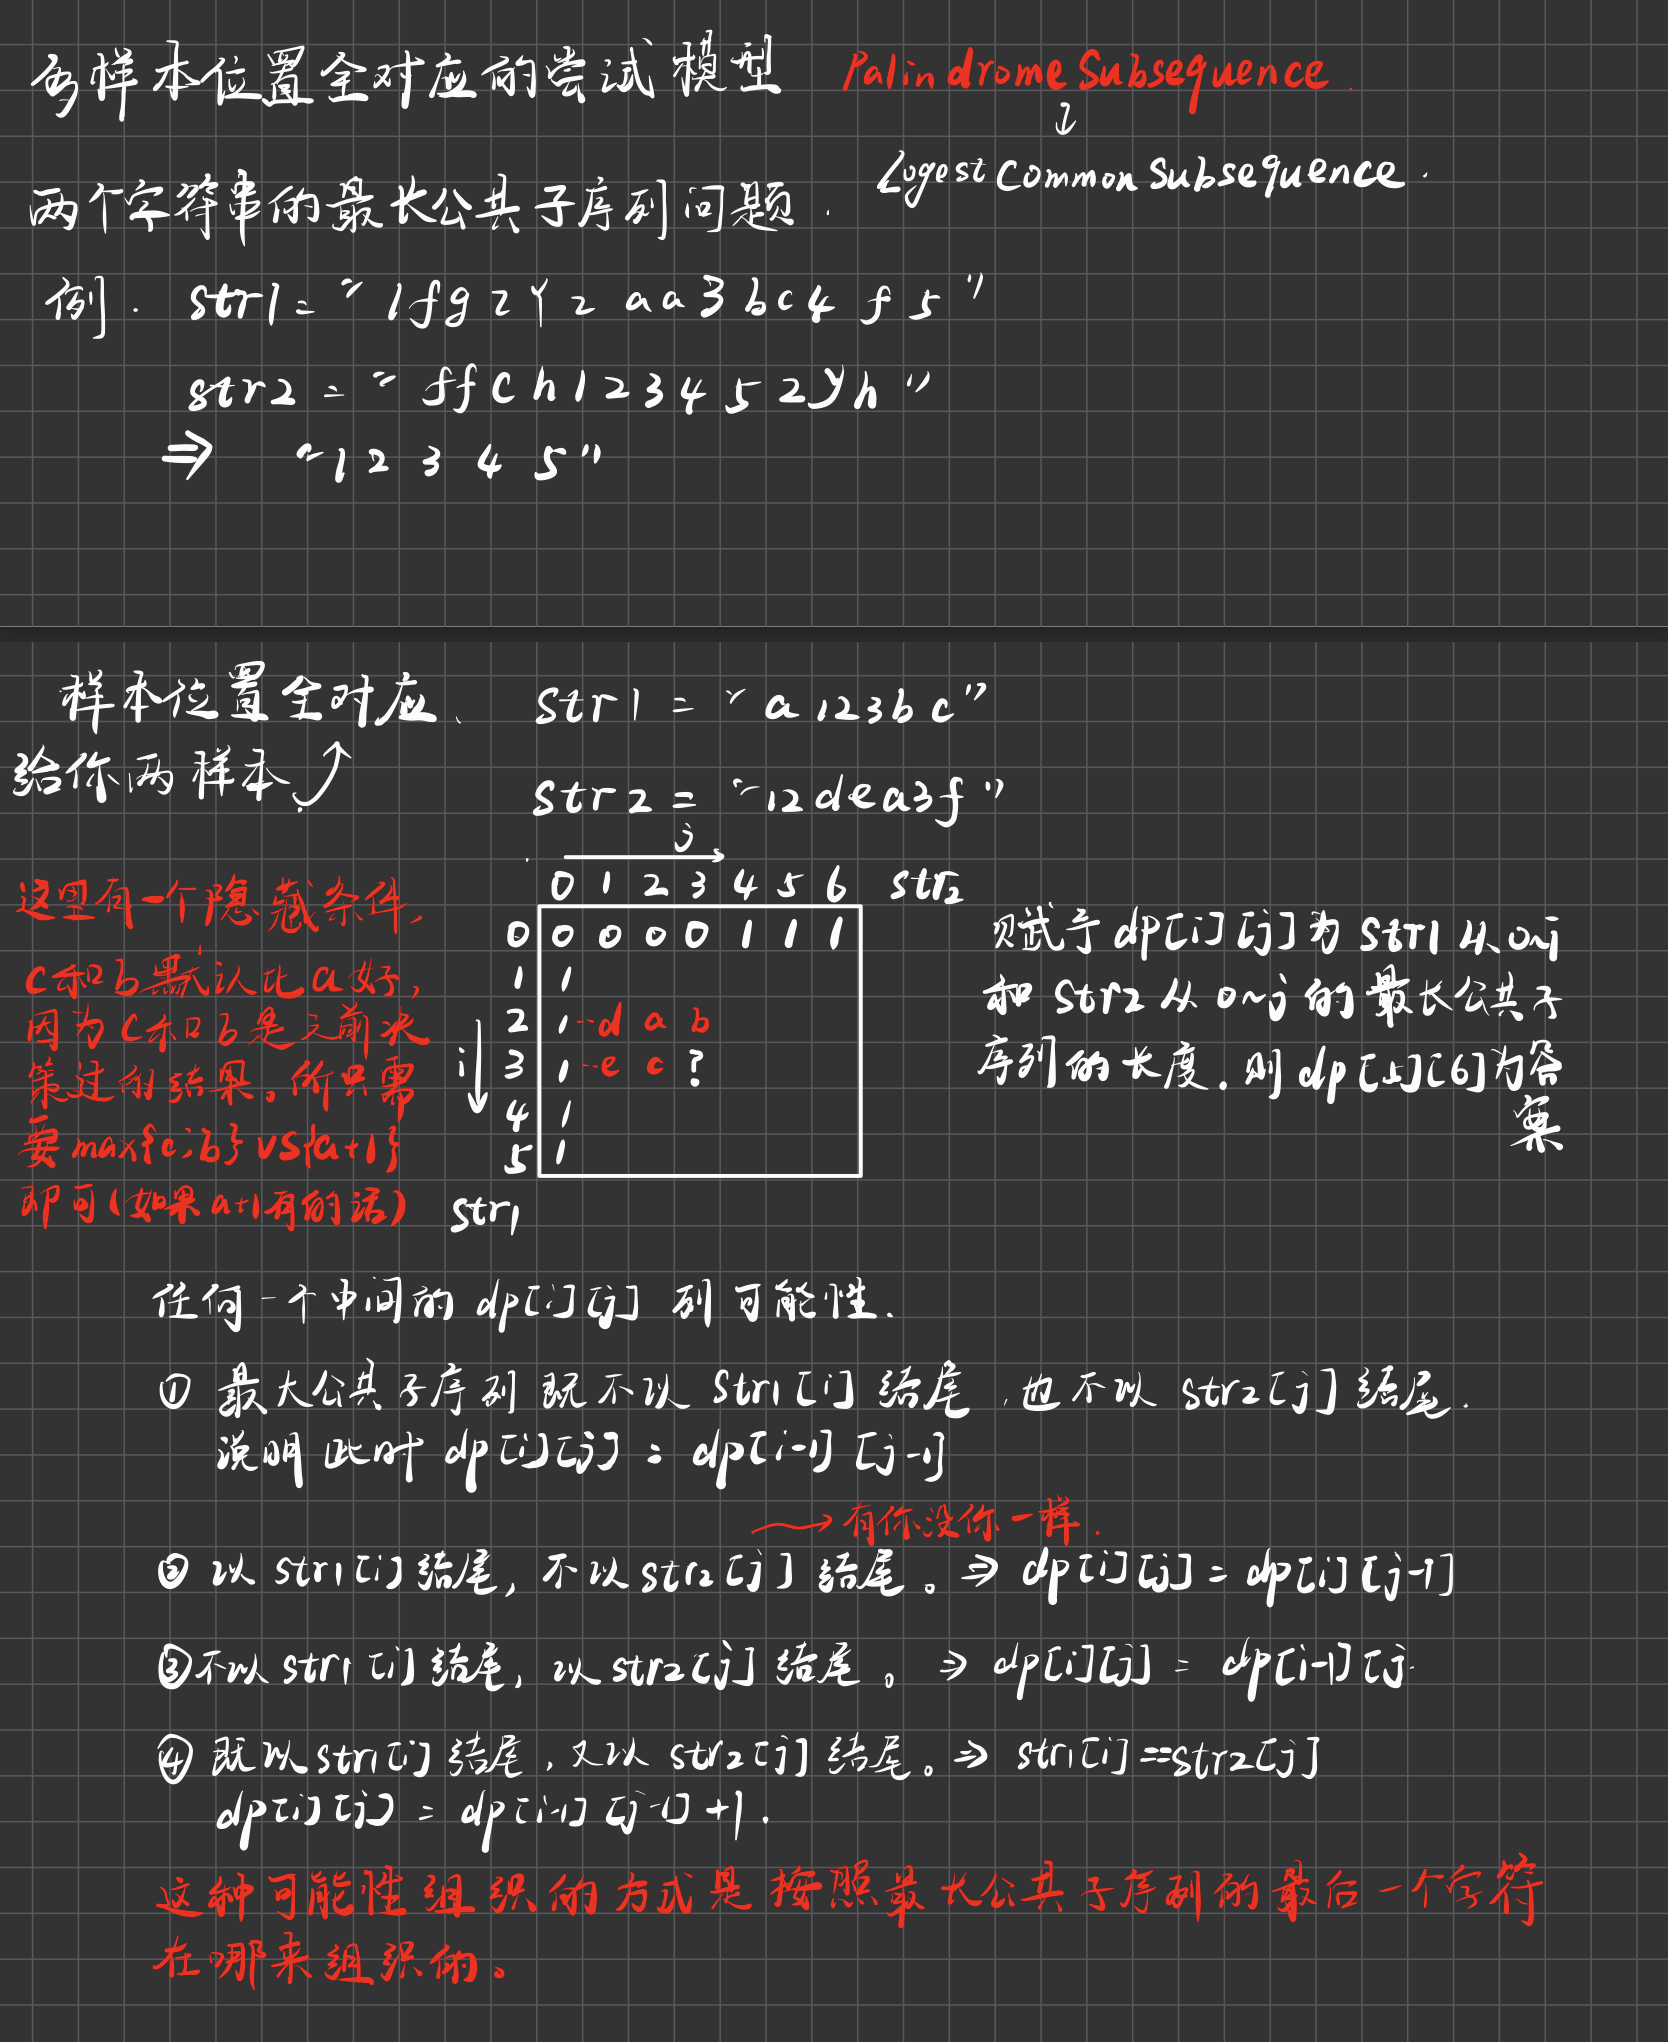 多样本位置全对应的尝试模型 Palindrome Subsequence.
↓
Logest Common Subsequence.
两个字符串的最长公共子序列问题.
例. str1 = "1fg2Y2aa3bc4f5"
str2 = "ffch123452yh"
⇒ "12345"
样本位置全对应. str1 = "a123bc"
给你两样本.
str2 = "12dea3f"
j
0 1 2 3 4 5 6 str2
0 0 0 0 0 1 1 1
1 1
2 1 d a b
i 3 1 e c ?
4 1
5 1
str1
这里有一个隐藏条件,
c和b默认比a好,
因为c和b是之前决
策过的结果。所只需
要max{c,b} vs{a+1}
即可(如果a+1有的话)
赋予dp[i][j]为str1从0~j
和str2从0~j的最长公共子
序列的长度.则dp[5][6]为答
案
任何一个中间的dp[i][j]列可能性.
① 最大公共子序列既不以str1[i]结尾,也不以str2[j]结尾.
说明此时dp[i][j] = dp[i-1][j-1]
→有你没你一样.
② 以str1[i]结尾,不以str2[j]结尾。⇒ dp[i][j] = dp[i][j-1]
③ 不以str1[i]结尾,以str2[j]结尾。⇒ dp[i][j] = dp[i-1][j.
④ 既以str1[i]结尾,又以str2[j]结尾。⇒ str1[i]==str2[j]
dp[i][j] = dp[i-1][j-1]+1.
这种可能性组织的方式是按照最长公共子序列的最后一个字符
在哪来组织的。